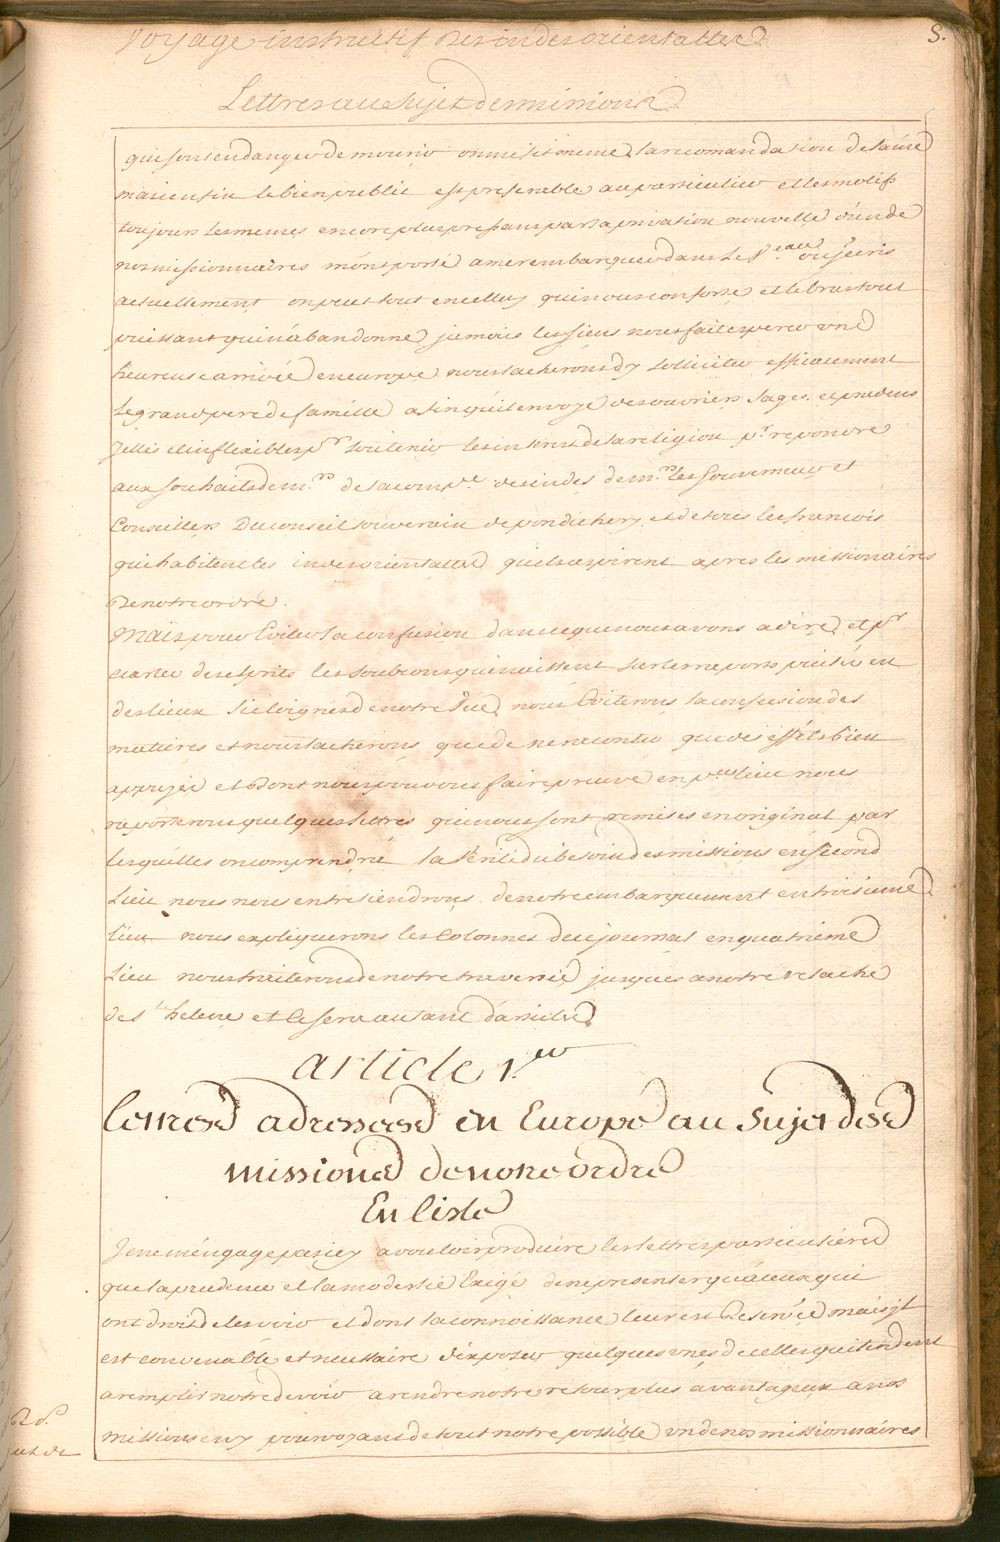 Voyage instructif des indes orientalles
8.
Lettres au sujet des missions
qui sont en danger de mourir on mesit meme la recomandation de l'ame
mais enfin le bien public est preferable au particulier et les motifs
toujours les memes encore plus pressans par la privation nouvelle d'un de
nos missionnaires m'ont porté a me rembarquer dans le v.eau ou j'ecris
actuellement, on peut tout en celluy qui nous conforte et le bras tout
puissant qui n'abandonne jamais les siens nous fait esperer une
heureuse arrivée en europe nous tacherons d'y solliciter efficacement
le grand pere de famille afin qu'il envoye des ouvriers sages et prudens
zellés et inflexibles pr soutenir les interest de la religion pr repondre
aux souhaits de m.rs de la comp.e des indes de m.rs les Gouverneur et
Conseillers du conseil souverain de pondichery, et de tous les francois
qui habitent les indes orientalles qui tous aspirent apres les missionaires
de notre ordre.
Mais pour Eviter la confusion dans ce que nous avons a dire, et pr
ecarter des esprits les soubcons qui naissent sur les raports puisés en
des lieux si eloignés de notre vue, nous Eviterons la confusion des
matieres et nous tacherons que de ne raconter que des effets bien
appuyés et dont nous pouvons faire preuve en p.er lieu nous
raporterons quelques lettres qui nous sont remises en original par
lesquelles on comprendra la verité du besoin des missions en second
Lieu nous nous entretiendrons de notre embarquement en troisieme
lieu nous expliquerons les Colonnes de ce journal en quatrieme
Lieu nous traiterons de notre traversée jusques a notre relache
de ste helene et ce sera autant d'articles
article 1.er
lettres adressées en Europe au Sujet des
missions de notre ordre
En liste
Je ne m'engage pas icy a vouloir produire les lettres particulieres
que la prudence et la modestie Exige de ne presenter qu'a ceux qui
ont droit de les voir et dont la connoissance leur est reservée mais jl
est convenable et necessaire d'exposer quelques unes de celles qui tendent
a remplir notre devoir a rendre notre retour plus avantageux a nos
missions en y pourvoyant de tout notre possible un de nos missionnaires